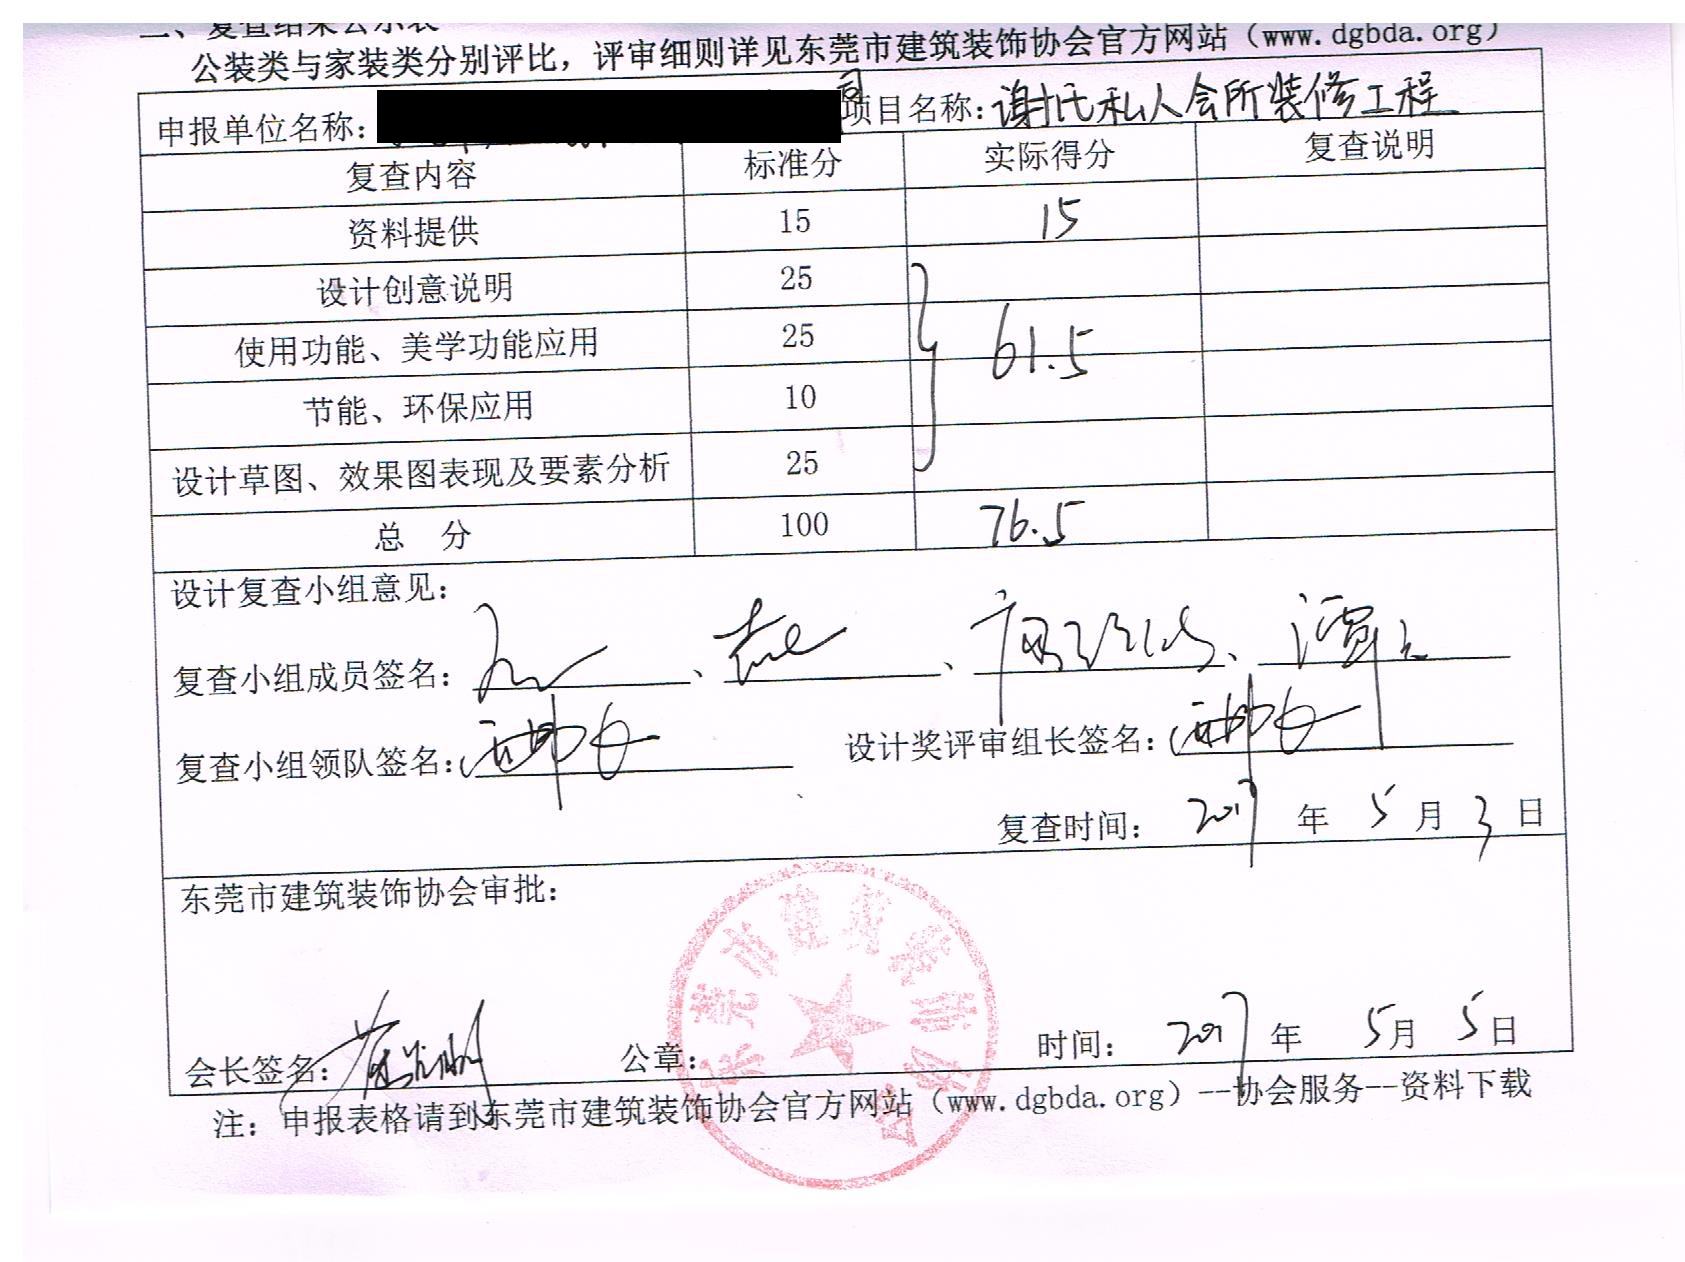 二、复查结果公示表
公装类与家装类分别评比，评审细则详见东莞市建筑装饰协会官方网站（www.dgbda.org）
申报单位名称： 司 项目名称：谢氏私人会所装修工程
复查内容 标准分 实际得分 复查说明
资料提供 15 15
设计创意说明 25
使用功能、美学功能应用 25 61.5
节能、环保应用 10
设计草图、效果图表现及要素分析 25
总 分 100 76.5
设计复查小组意见：
复查小组成员签名： 、 、 、
复查小组领队签名： 设计奖评审组长签名：
复查时间： 2017 年 5 月 3 日
东莞市建筑装饰协会审批：
东莞市建筑装饰协会
会长签名： 公章： 时间： 2017 年 5 月 5 日
注：申报表格请到东莞市建筑装饰协会官方网站（www.dgbda.org）--协会服务--资料下载